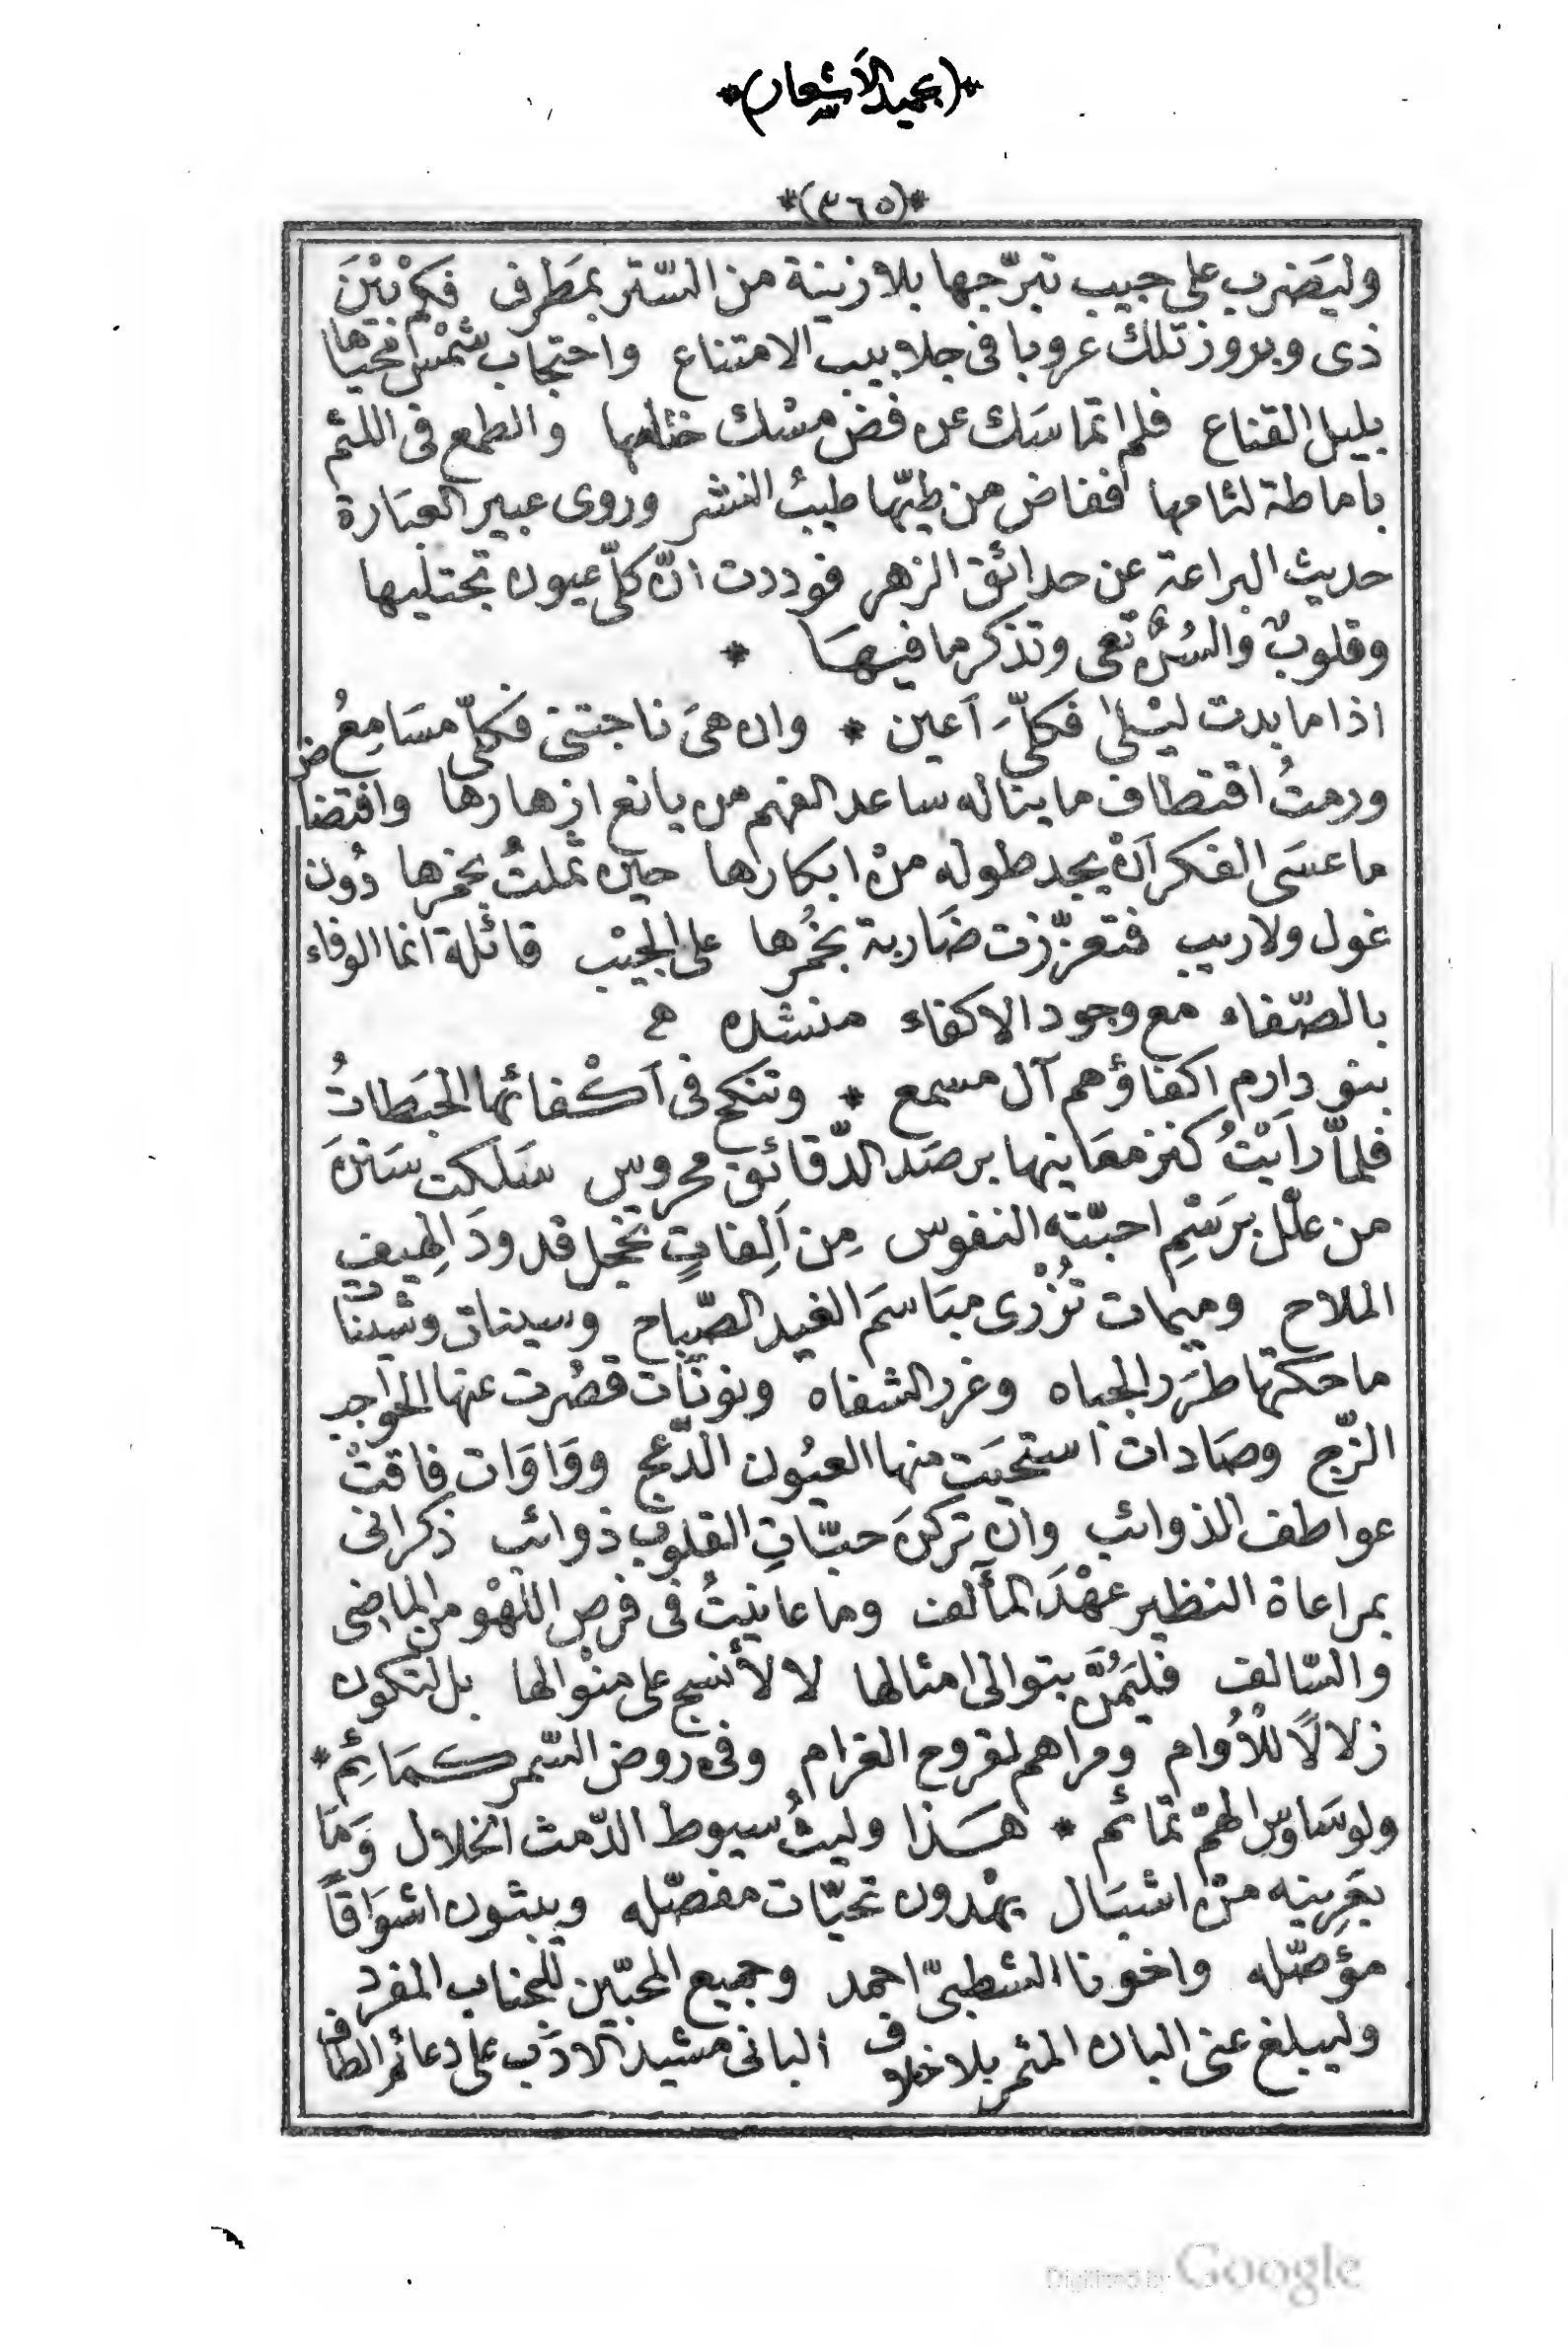 *(بحميد الأشعار)*
*(٣٦٥)*
وليَضرب على جيب تبرّجها بلا زينة من السّتر بمَطرف فكم بَيْنَ
ذى وبروز تلك عروبا فى جلابيب الامتناع واحتجاب شمْس محيّاها
بليل القناع فلم اتماسَك عن فض مسْك ختامها والطمع فى اللثم
باماطة لثامها ففاض من طيّها طيبُ النشر وروى عبير العبَارة
حديث البراعة عن حدائق الزهر فوددت انّ كلّى عيون تجتليها
وقلوبٌ والسُنٌ تعى وتذكر ما فيهَا *
اذا ما بدت ليْلى فكلّىَ اَعين * وان هىَ ناجتنى فكلّى مسَامعُ
ورمتُ اقتطاف ما يناله ساعد الفهم من يانع ازهارها وافتضاض
ما عسَى الفكر اَنْ يجد طوله منْ ابكارها حين ثملتُ بخمرها دُون
غول ولا ريب فتعزّزت ضَاربة بخُمرها على الجيْب قائلة انما الوفاء
بالصّفاء مع وجود الاكفاء منشده
بنو دارم اكفاؤهم آل مسمع * وتنكح فى اَكْفائها الحبَطاتُ
فلمّا رَاَيْتُ كنز معَاينها برصَد الدّقائق محروس سَلكت سَننَ
من علّل برَسْمِ احبّته النفوس مِن اَلِفاتٍ تخجل قدودَ الهيف
الملاح وميمات تُزْرى مبَاسَم الغيد الصّباح وسينات وشينات
ما حكتها طرَر الجباه وغرر الشفاه ونونات قصُرت عنها الحواجب
الزّج وصَادات استحيَت منها العيُون الدّعج ووَاوَات فاقتْ
عواطف الذوائب وان تركنَ حبّاتِ القلوب ذوائب ذكرانى
بمراعاة النظير عهْدَ المآلف وما عاينتُ فى فرص اللّهْو من الماضى
والسّالف فليَمُنَّ بتوالى امثالها لا لأنسج على منْوالها بل لتكون
زلالًا للأُوام ومراهم لقروح الغرام وفى روض السّمر كمَائِم *
ولوسَاوس الهمّ تمائم * هـَذا وليثُ سيوط الدّمث الخلال وَمَا
بعَرِينه منْ اشبَال يهْدون تحيّات مفصّله ويبثون اشوَاقاً
مؤصّله واخونا الشطبىّ احمد وجميع المحبّين للجناب المفرد
وليبلغ عنى البان المثمر بلا خلاف البانى مشيد الادَب على دعائم الطاف
Digitized by Google